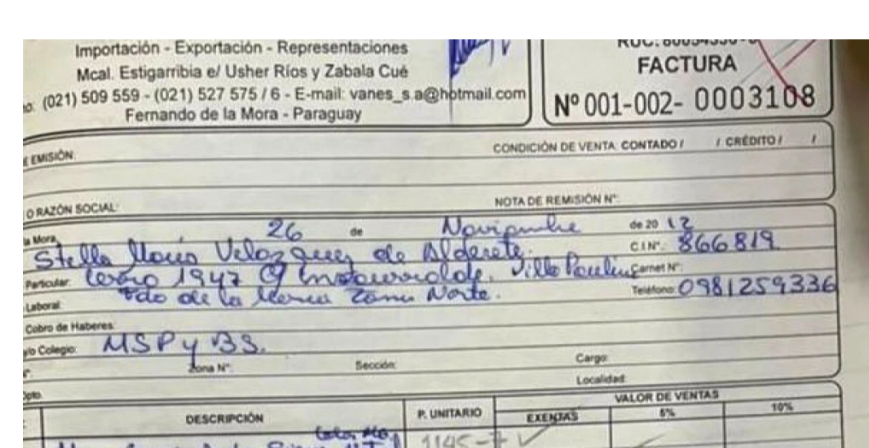 Importación - Exportación - Representaciones
Mcal. Estigarribia e/ Usher Ríos y Zabala Cué
(021) 509 559 - (021) 527 575 / 6 - E-mail: vanes_s.a@hotmail.com
Fernando de la Mora - Paraguay
FACTURA
Nº 001-002- 0003108
EMISIÓN:
CONDICIÓN DE VENTA: CONTADO / / CRÉDITO / /
O RAZÓN SOCIAL:
NOTA DE REMISIÓN Nº:
Mora, 26 de Noviembre de 20 12
Stella María Velazquez de Alderete. C.I.Nº: 866819
Particular: Cerro 1947 Villa Carnet Nº:
Laboral: Fdo de la Mora Zona Norte. Teléfono: 0981259336
Cobro de Haberes:
Colegio: MSP y BS.
Zona Nº: Sección: Cargo:
Localidad:
DESCRIPCIÓN P. UNITARIO VALOR DE VENTAS
EXENTAS 5% 10%